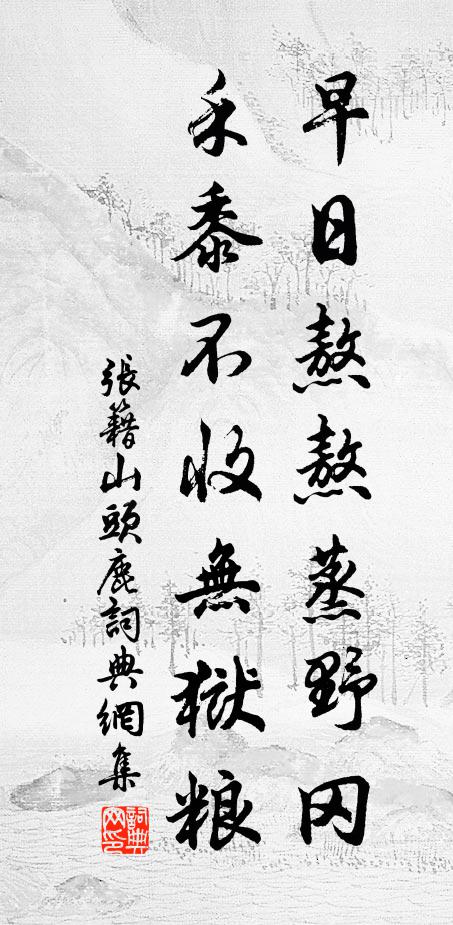 早日熬熬蒸野冈
禾黍不收無獄粮
張籍山頭鹿詞典網集
詞典
网印